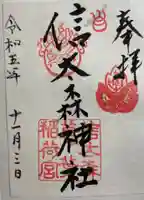 奉拝
信太森神社
令和五年
十一月三日